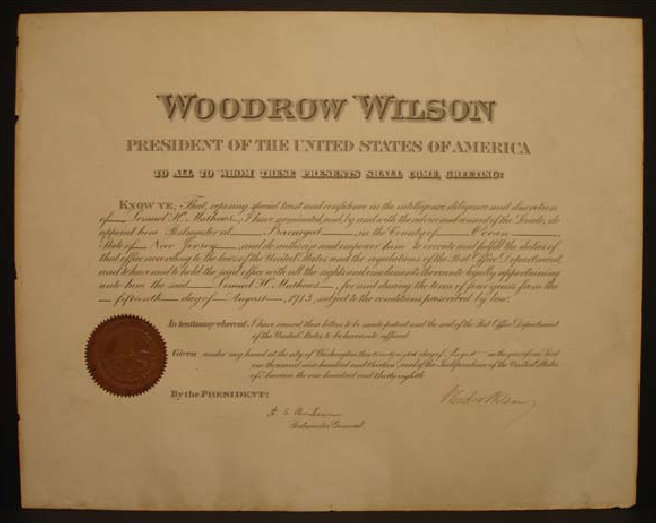 WOODROW WILSON
PRESIDENT OF THE UNITED STATES OF AMERICA
TO ALL TO WHOM THESE PRESENTS SHALL COME, GREETING:
KNOW YE, That, reposing special trust and confidence in the intelligence, diligence and discretion
of Samuel H. Mathews, I have appointed, and by and with the advice and consent of the Senate, do
appoint him Postmaster at Barnegat, in the County of Ocean
State of New Jersey, and do authorize and empower him to execute and fulfill the duties of
that office according to the laws of the United States and the regulations of the Post Office Department,
and to have and to hold the said office with all the rights and emoluments thereunto legally appertaining
unto him the said Samuel H. Mathews, for and during the term of four years from the
fifteenth day of August, 1913, subject to the conditions prescribed by law.
In testimony whereof, I have caused these letters to be made patent and the seal of the Post Office Department
of the United States to be hereunto affixed.
Given under my hand at the city of Washington, the day of August in the year of our Lord
one thousand nine hundred and thirteen, and of the Independence of the United States
of America the one hundred and thirty eighth
By the PRESIDENT:
Woodrow Wilson
Postmaster General